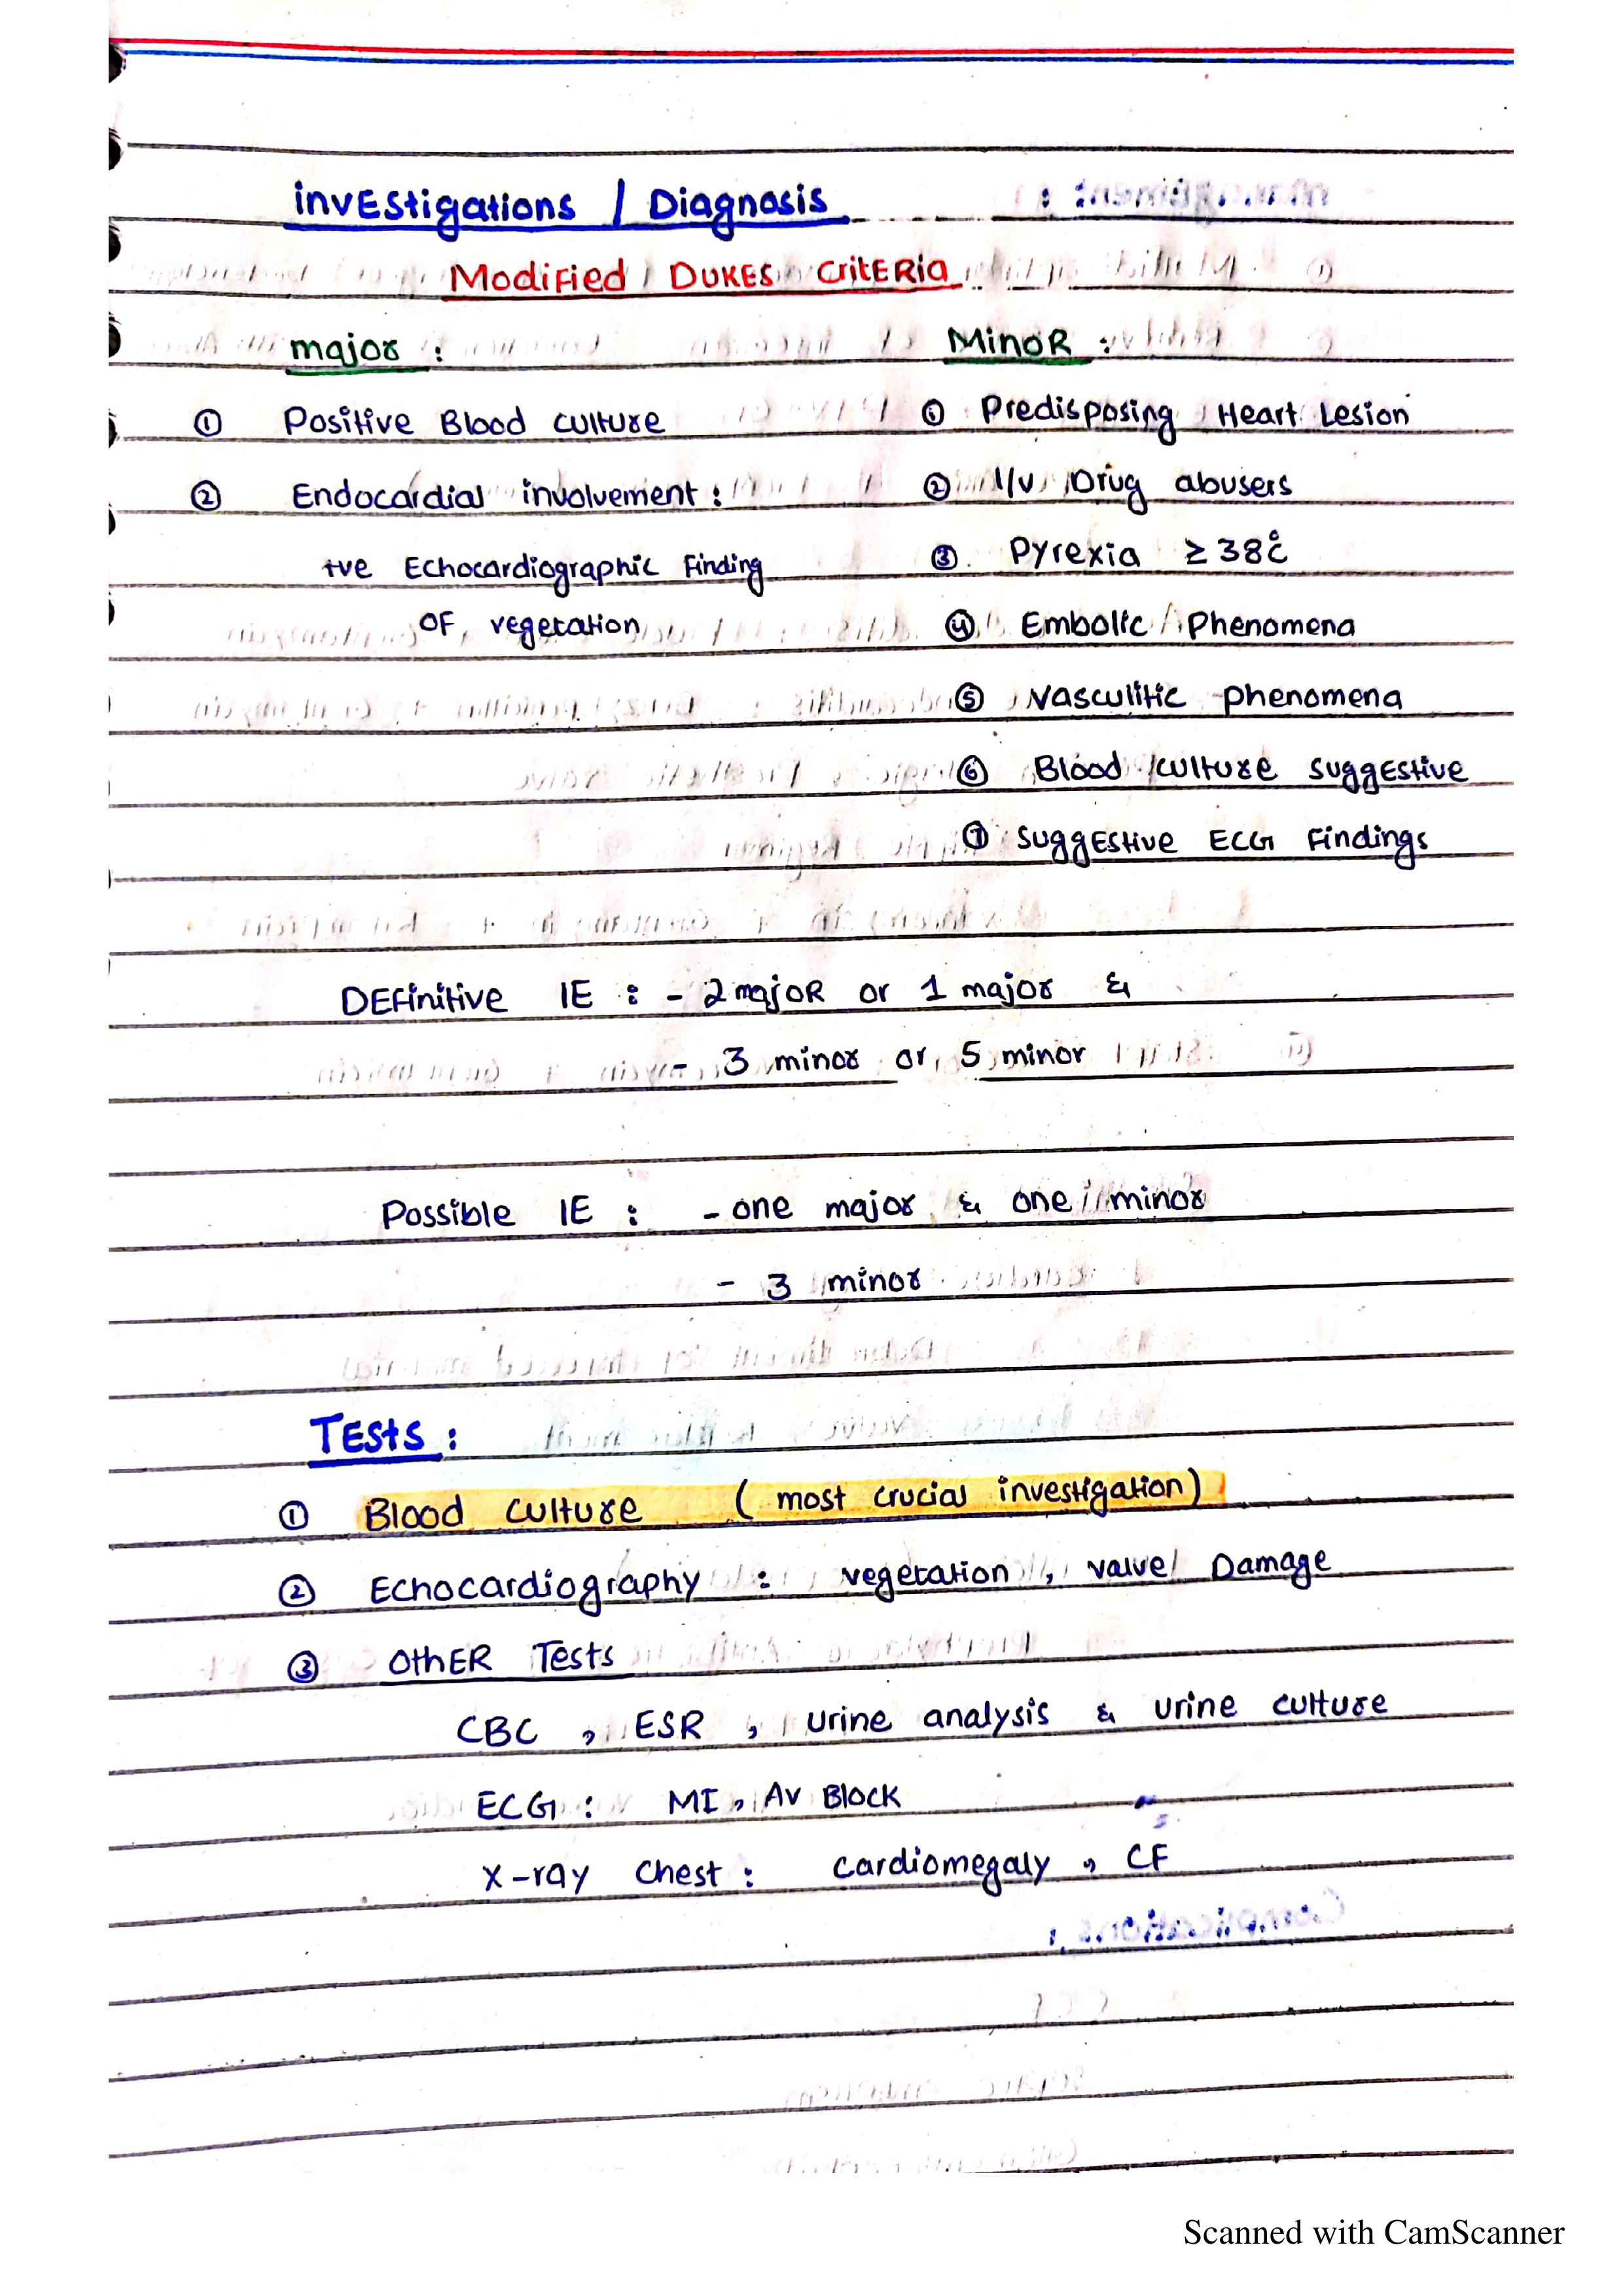 invEstigations / Diagnosis
Modified DUKES CritERia
major :
MinoR :
① Positive Blood culture
① Predisposing Heart Lesion
② Endocardial involvement :
② I/V Drug abusers
+ve Echocardiographic Finding
③ Pyrexia ≥ 38°C
OF vegetation
④ Embolic Phenomena
⑤ Vasculitic phenomena
⑥ Blood culture suggEstive
⑦ suggEstive ECG Findings
DEFinitive IE : - 2 majoR or 1 major &
- 3 minor or 5 minor
Possible IE : - one major & one minor
- 3 minor
TEsts :
① Blood culture ( most crucial investigation )
② Echocardiography : vegetation , valve Damage
③ OthER Tests
CBC , ESR , urine analysis & urine culture
ECG : MI , AV Block
X-ray Chest : Cardiomegaly , CF
Scanned with CamScanner